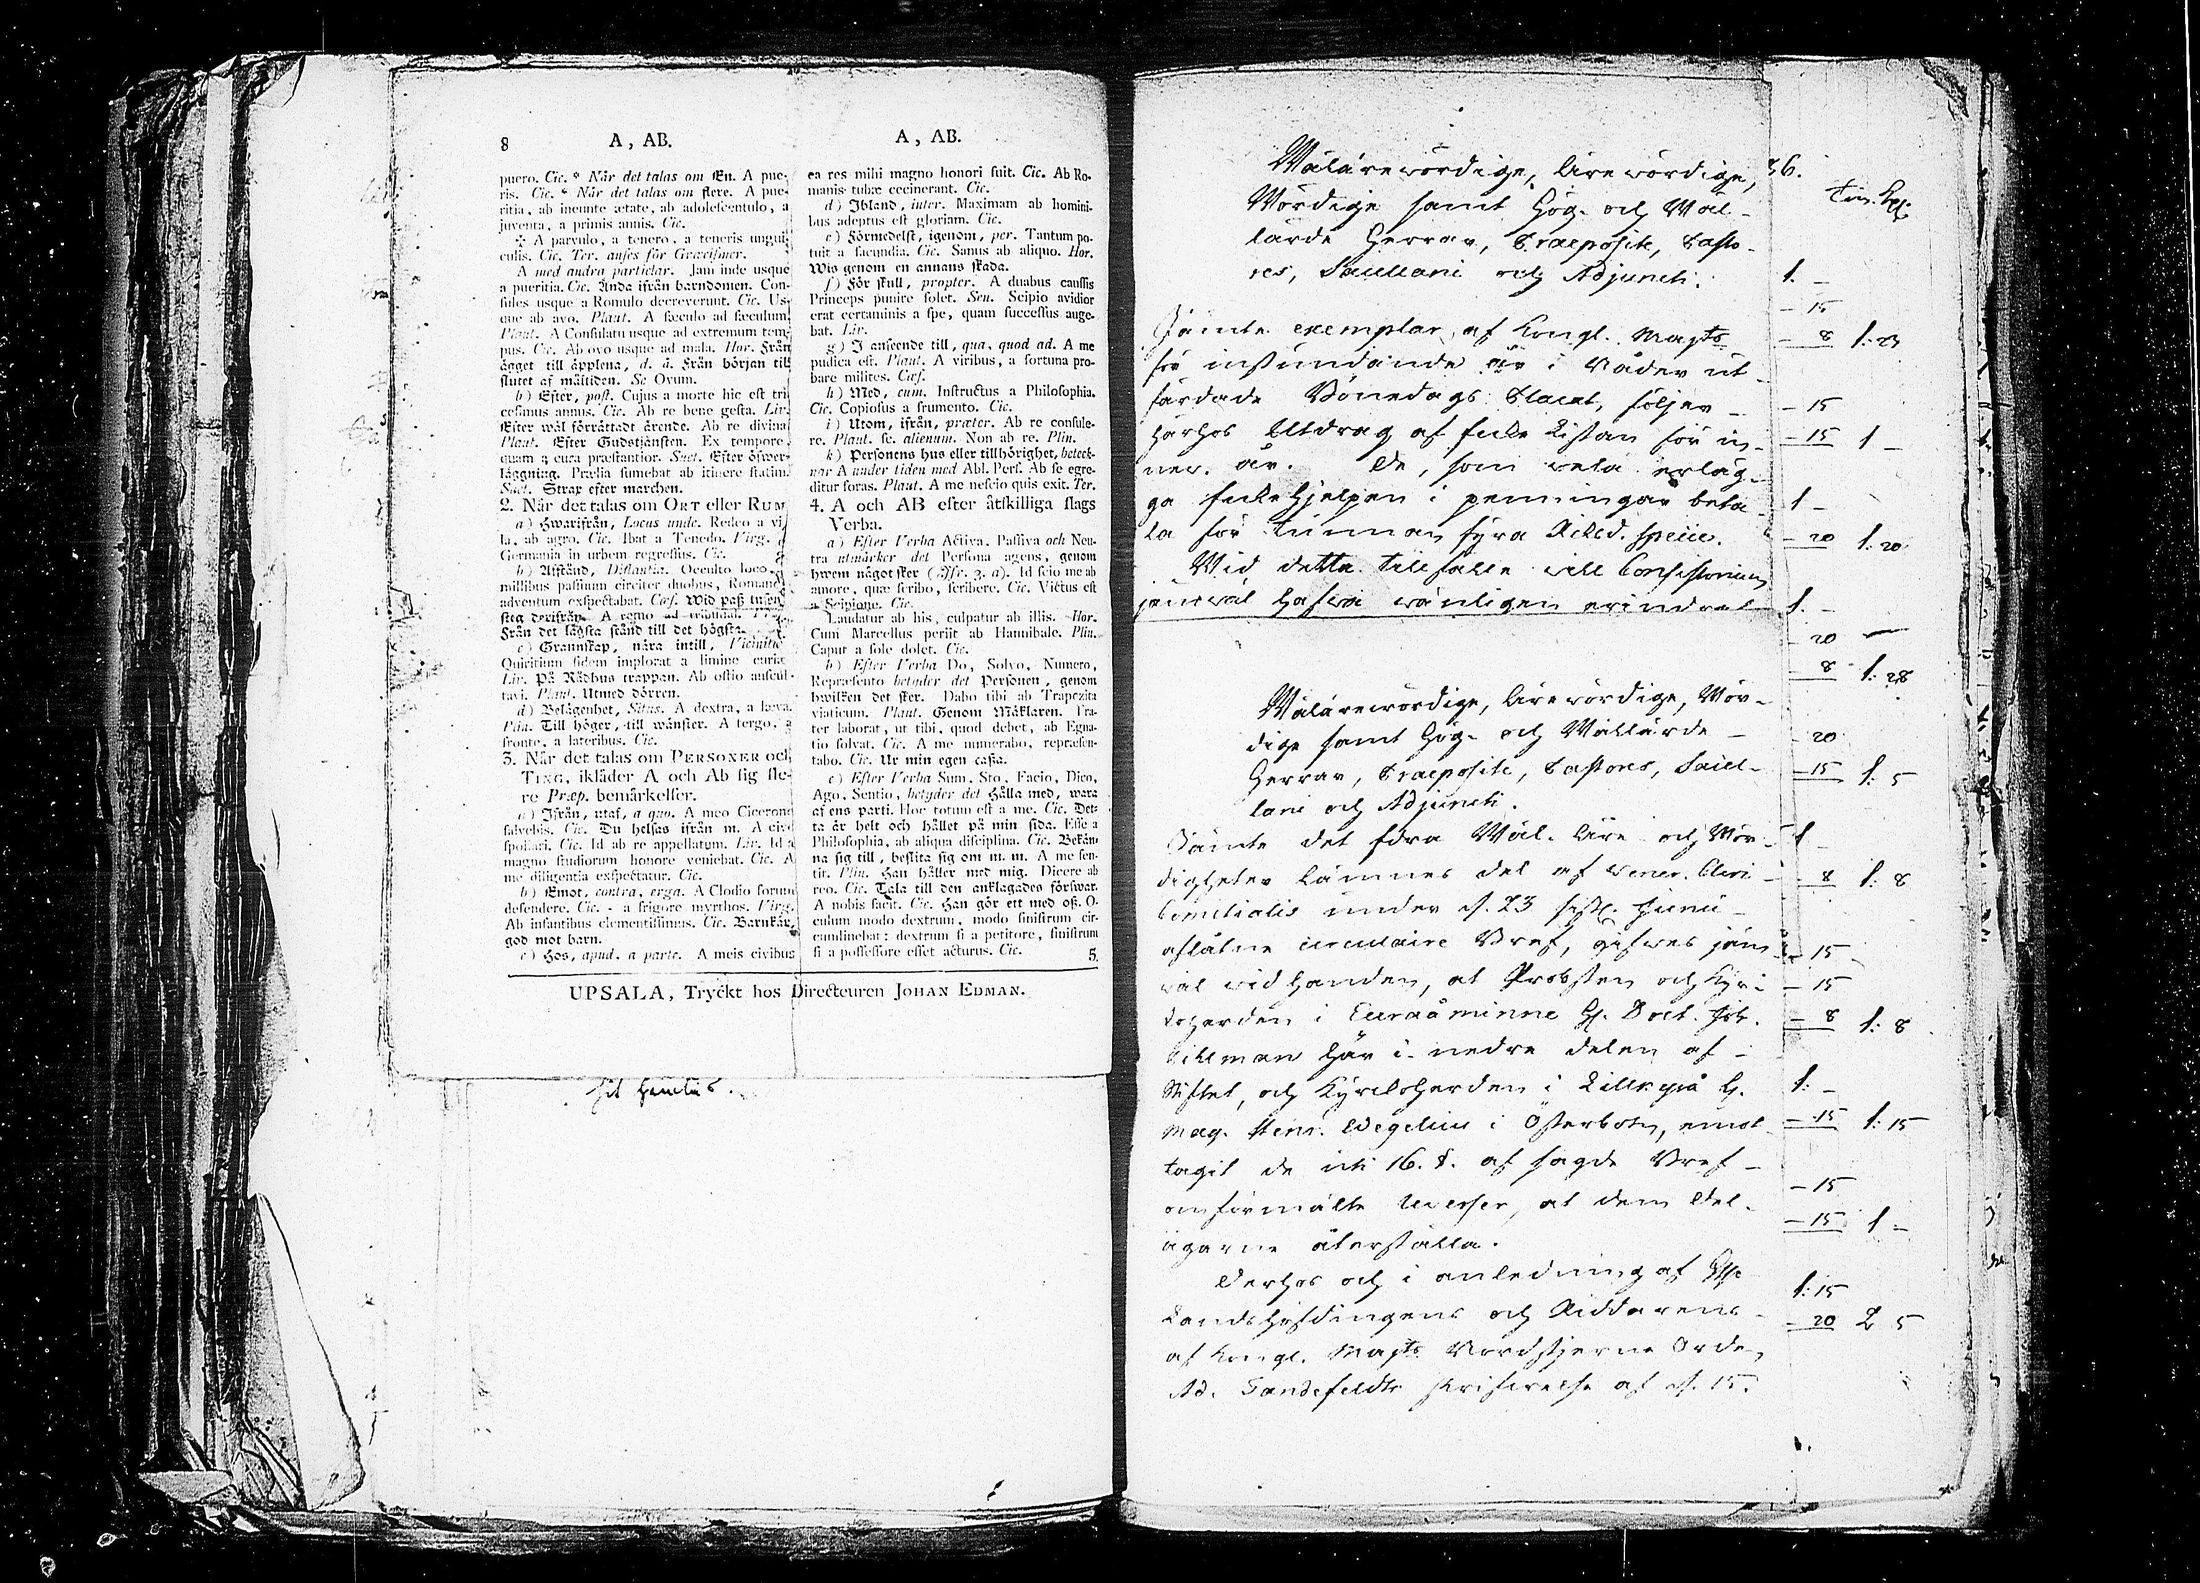 8 A, AB.
puero. Cic. * När det talas om En. A pue-
ris. Cic. * När det talas om flere. A pue-
ritia, ab ineunte ætate, ab adolescentulo, a
juventa, a primis annis. Cic.
A parvulo, a tenero, a teneris ungui-
culis. Cic. Ter. anses för Græcismer.
A med andra particlar. Jam inde usque
a pueritia. Cic. Ända ifrån barndomen. Con-
sules usque a Romulo decreverunt. Cic. Us-
que ab avo. Plaut. A sæculo ad sæculum.
Plaut. A Consulatu usque ad extremum tem-
pus. Cic. Ab ovo usque ad mala. Hor. Från
ägget till äpplena, d. ä. Från början till
slutet af måltiden. Se Ovum.
b) Efter, post. Cujus a morte hic est tri-
cesimus annus. Cic. Ab re bene gesta. Liv.
Efter wäl förrättadt ärende. Ab re divina
Plaut. Efter Gudstjänsten. Ex tempore,
quam a cura præstantior. Suet. Efter öfwer-
läggning. Prælia sumebat ab itinere statim.
Suet. Strax efter marchen.
2. När det talas om ORT eller RUM
a) Hwarifrån, Locus unde. Redeo a vil-
la, ab agro. Cic. Ibat a Tenedo. Virg.
Germania in urbem regressus. Cic.
b) Afstånd, Distantia. Occulto loco,
millibus passuum circiter duobus, Romano
adventum exspectabat. Cæs. Wid paß tusen
steg derifrån. A remo ad tribunal.
Från det lägsta stånd till det högsta.
c) Grannskap, nära intill, Vicinitie
Quiritium fidem implorat a limine curiæ
Liv. På Rådhus trappan. Ab ostio auscul-
tavi. Plaut. Utmed dörren.
d) Belägenhet, Situs. A dextra, a læva.
Plin. Till höger, till wänster. A tergo, a
fronte, a lateribus. Cic.
3. När det talas om PERSONER och
TING, ikläder A och Ab sig fle-
re Præp. bemärkelser.
a) Ifrån, utaf, a quo. A meo Cicerone
salvebis. Cic. Du helsas ifrån m. A cive
spoliari. Cic. Id ab re appellatum. Liv. Id a
magno studiorum honore veniebat. Cic. A
me diligentia exspectatur. Cic.
b) Emot, contra, erga. A Clodio forum
defendere. Cic. - a frigore myrthos. Virg.
Ab infantibus clementissimus. Cic. Barnkär,
god mot barn.
c) Hos, apud, a parte. A meis civibus
A, AB.
ea res mihi magno honori fuit. Cic. Ab Ro-
manis tubæ cecinerant. Cic.
d) Ibland, inter. Maximam ab homini-
bus adeptus est gloriam. Cic.
e) Förmedelst, igenom, per. Tantum po-
tuit a facundia. Cic. Sanus ab aliquo. Hor.
Wis genom en annans skada.
f) För skull, propter. A duabus caussis
Princeps punire solet. Sen. Scipio avidior
erat certaminis a spe, quam successus auge-
bat. Liv.
g) I anseende till, qua, quod ad. A me
pudica est. Plaut. A viribus, a fortuna pro-
bare milites. Cæs.
h) Med, cum. Instructus a Philosophia.
Cic. Copiosus a frumento. Cic.
i) Utom, ifrån, præter. Ab re consule-
re. Plaut. sc. alienum. Non ab re. Plin.
k) Personens hus eller tillhörighet, beteck-
nar A under tiden med Abl. Pers. Ab se egre-
ditur foras. Plaut. A me nescio quis exit. Ter.
4. A och AB efter åtskilliga slags
Verba.
a) Efter Verba Activa, Passiva och Neu-
tra utmärker det Persona agens, genom
hwem något sker (Jfr. 3. a). Id scio me ab
amore, quæ scribo, scribere. Cic. Victus est
a Scipione. Cic.
Laudatur ab his, culpatur ab illis. Hor.
Cum Marcellus periit ab Hannibale. Plin.
Caput a sole dolet. Cic.
b) Efter Verba Do, Solvo, Numero,
Repræsento betyder det Personen, genom
hwilken det sker. Dabo tibi ab Trapezita
viaticum. Plaut. Genom Mäklaren. Fra-
ter laborat, ut tibi, quod debet, ab Egna-
tio solvat. Cic. A me numerabo, repræsen-
tabo. Cic. Ur min egen cassa.
c) Efter Verba Sum, Sto, Facio, Dico,
Ago, Sentio, betyder det Hålla med, wara
af ens parti. Hoc totum est a me. Cic. Det-
ta är helt och hållet på min sida. Esse a
Philosophia, ab aliqua disciplina. Cic. Bekän-
na sig till, beflita sig om m. m. A me sen-
tit. Plin. Han håller med mig. Dicere ab
reo. Cic. Tala till den anklagades förswar.
A nobis facit. Cic. Han gör ett med oß. O-
culum modo dextrum, modo sinistrum cir-
cumlinebat: dextrum si a petitore, sinistrum
si a possessore esset acturus. Cic. 5.
UPSALA, Tryckt hos Directeuren JOHAN EDMAN.
Wälärewördige, Ärewördige,
Wördige samt Hög- och Wäl-
lärde Herrar, Præposite, Pasto-
res, Sacellani och Adjuncti.
Jämte exemplar af Kongl. Majts
för instundande år i Nåder ut-
färdade Bönedags Placat, följer
härhos Utdrag af Listan för in-
new. år. De, som wela erläg-
ga hjelpen i penningar beta-
la för tunnan fyra Riksd. specie.
Wid detta tillfälle will Consistorium
jämwäl hafwa wänligen erindrat
Wälärewördige, Ärewördige, Wör-
dige samt Hög- och Wällärde
Herrar, Præposite, Pastores, Sacel-
lani och Adjuncti.
Jämte det Edra Wäl- Äre- och Wör-
digheter lämnes del af Vener. Cleri
Comitialis under d. 23 sistl. Junii
aflåtne circulaire Bref, gifwes jäm-
wäl wid handen, at Probsten och Kyr-
koherden i Euraåminne H. Doct. Joh.
här i nedre delen af
Stiftet, och Kyrckoherden i Lillkyrå H.
Mag. Henr. Wegelius i Österbotn, emot-
tagit de uti 16. §. af sagde Bref
omförmälte Reverser, at dem Del-
ägarne återställa.
Derhos och i anledning af
Landshöfdingens och Riddarens
af Kongl. Majts Nordstjerne Orden
Ad. Tandefeldts skrifwelse af d. 15.
36.
1. -
- 15
- 8 1: 23
- 15
- 15 1 -
1 -
- 20 1: 20
1. -
- 20
- 8 1: 28
- 20
- 15 1: 5
1 -
- 8 1: 8
- 15
- 15
- 8 1: 8
1: -
- 15 1: 15
- 15
- 15 1 -
1: 15
- 20 2 5